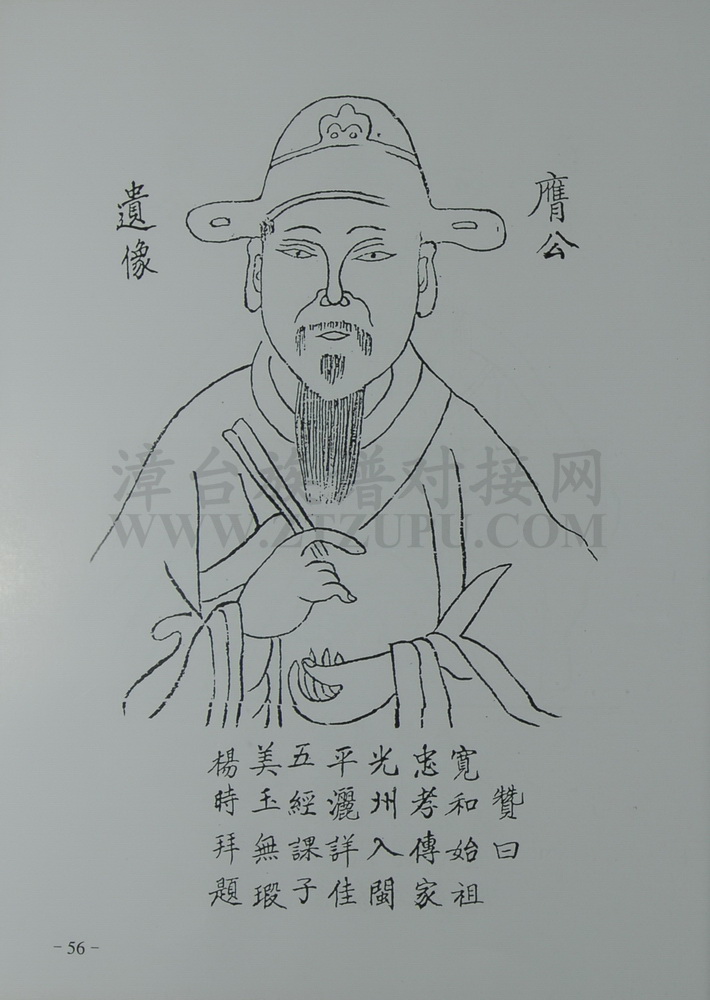 膺公
遺像
漳台族谱对接网
WWW.ZTZUPU.COM
贊曰
寬和始祖
忠孝傳家
光州入閩
平灑詳佳
五經課子
美玉無瑕
楊時拜題
- 56 -